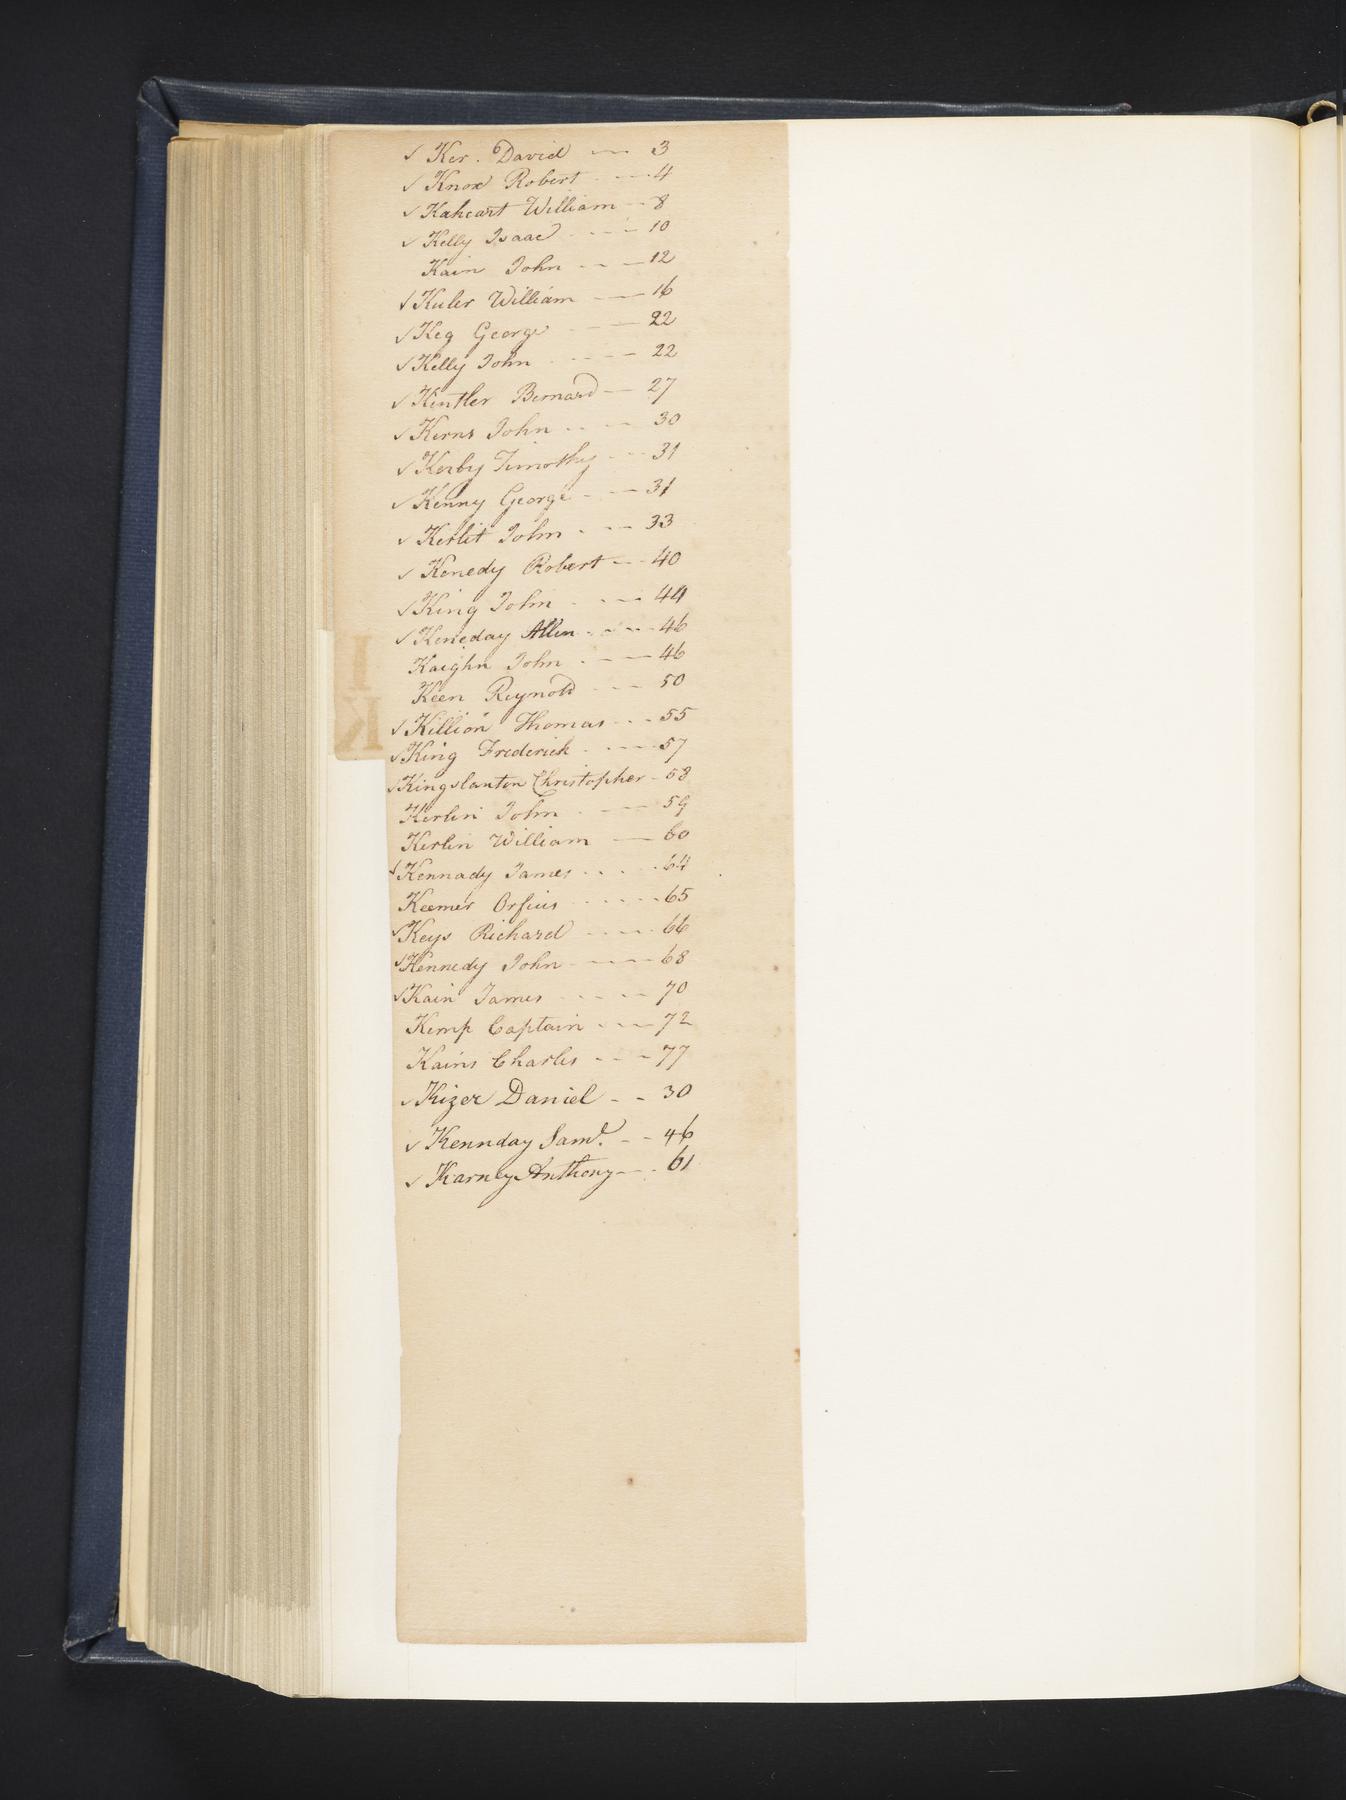 ✓ Ker. David — 3
✓ Knox Robert - — 4
✓ Kahcart William - - 8
✓ Kelly Isaac - - - - 10
Kain John - - — 12
✓ Kuler William — 16
✓ Keg George - — 22
✓ Kelly John - - - - 22
✓ Kentler Bernard — 27
✓ Kerns John - - - - 30
✓ Kerby Timothy - - - 31
✓ Kenny George - — 31
✓ Kerlit John - - — 33
✓ Kenedy Robert - — 40
✓ King John - - — 44
✓ Keneday Allen - - - - 46
Kaighn John - — 46
Keen Reynold - - — 50
✓ Killion Thomas - - - 55
✓ King Frederick - - — 57
✓ Kingslanton Christopher - 58
Kerlin John - — 59
Kerlin William — 60
✓ Kennady James - - - - 64
Keemer Orfius - - - - - 65
✓ Keys Richard - - — 66
✓ Kennedy John - — 68
✓ Kain James - - - - 70
Kemp Captain - - — 72
Kains Charles - - - 77
✓ Kizer Daniel - - 30
✓ Kennday Saml. - - 46
✓ Karney Anthony — - 61
I
K